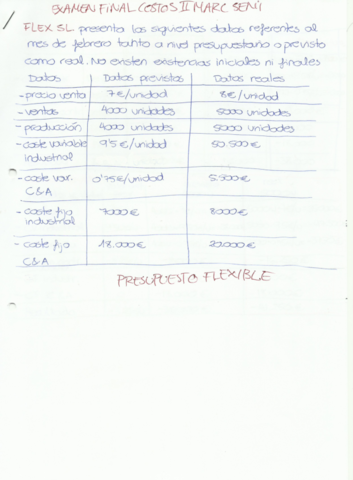 EXAMEN FINAL COSTOS II MARC SENI
FLEX SL presenta los siguientes datos referentes al
mes de febrero tanto a nivel presupuestario o previsto
como real. No existen existencias iniciales ni finales
Datos Datos previstos Datos reales
- precio venta 7€/unidad 8€/unidad
- ventas 4000 unidades 5000 unidades
- producción 4000 unidades 5000 unidades
- coste variable industrial 9'5€/unidad 50.500€
- coste var. C&A 0'75€/unidad 5.500€
- coste fijo industrial 7000€ 8000€
- coste fijo C&A 18.000€ 20.000€
PRESUPUESTO FLEXIBLE